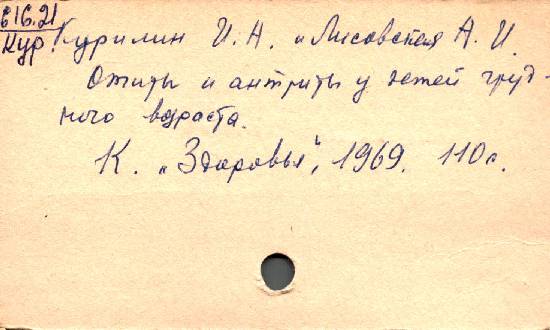 616.21
Кур
Курилин И. А. и Лисовская А. И.
Отиты и антриты у детей груд-
ного возраста.
К. „Здоровья“, 1969. 110с.